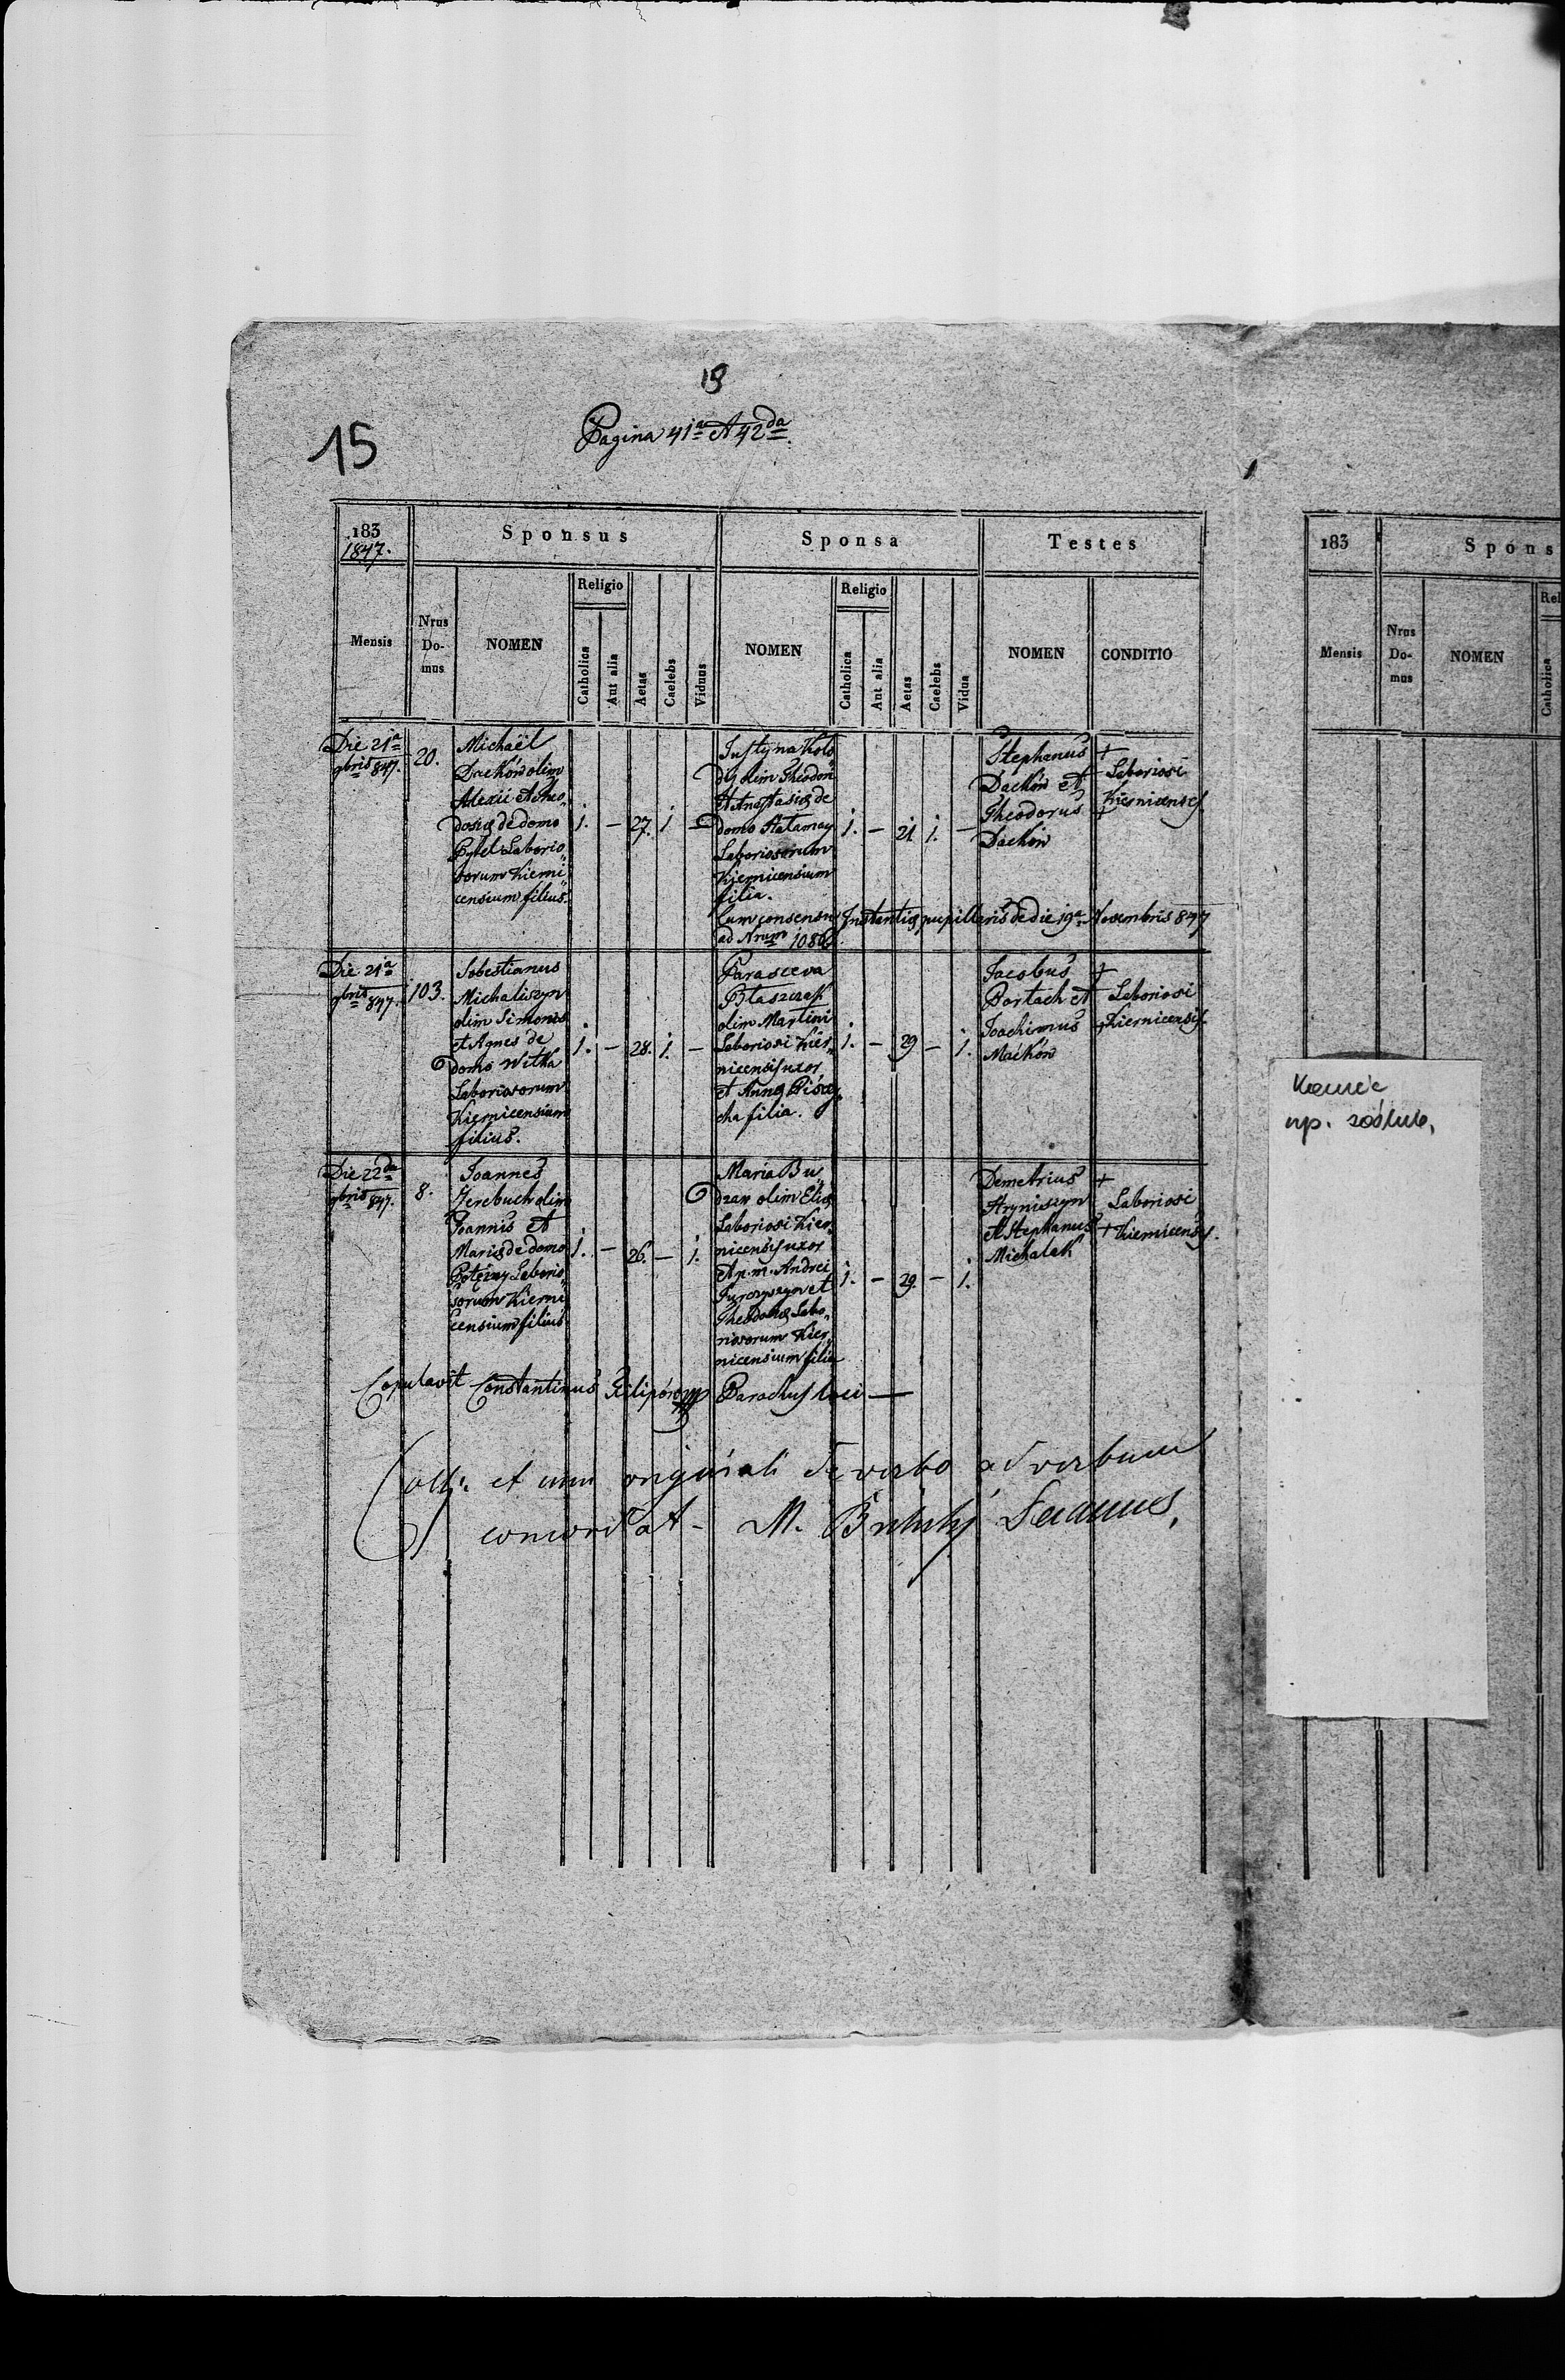 19
15
Pagina 41a et 42da
183
1847.
Sponsus
Sponsa
Testes
Mensis
Nrus Do- mus
NOMEN
Religio
Catholica
Aut alia
Aetas
Caelebs
Viduus
NOMEN
Religio
Catholica
Aut alia
Aetas
Caelebs
Vidua
NOMEN
CONDITIO
Die 21a
9bris 847.
20.
Michaël
Dackón olim
Alexii et Theo„
dosiæ de domo
Laborio„
sorum Kierni„
censium filius.
1. — 27. 1 —
Justyna Koło„
dij olim Theodori
et Anastasiæ de
domo
Laboriosorum
Kiernicensium
filia.
1. — 21 1. —
Stephanus +
Dackón et
Theodorus +
Dackón
Laboriosi
Kiernicenses
Cum consensu Instantiæ pupillaris de die 19a Novembris 847
ad Nrum 1086
Die 21a
9bris 847.
103.
Sebestianus
Michaliszyn
olim Simonis
et Agnes de
domo Witka
Laboriosorum
Kiernicensium
filius.
1. — 28. 1. —
Parasceva
Błaszczak
olim Martini
Laboriosi Kier„
nicensis uxor
et Annæ
cha filia.
1. — 29 — 1.
Jacobus +
Bortach et
Joachimus +
Maćkón
Laboriosi
Kiernicenses
Die 22da
9bris 847.
8.
Joannes
Jerebuch olim
Joannis et
Mariæ de domo
Potężny Laborio„
sorum Kierni„
censium filius
1. — 26. — 1.
Maria Bu„
dzan olim Eliæ
Laboriosi Kier„
nicensis uxor
et p. m. Andrei
et
Theodoræ Labo„
riosorum Kier„
nicensium filia
1. — 29. — 1.
Demetrius +
Hryniszyn
et Stephanus +
Michalak
Laboriosi
Kiernicenses.
Copulavit Constantinus Parochus loci —
et cum originali de verbo ad verbum
concordat - M. Decanus,
183
Spons
Mensis
Nrus Do- mus
NOMEN
Rel
Catholica
np. zaślub,